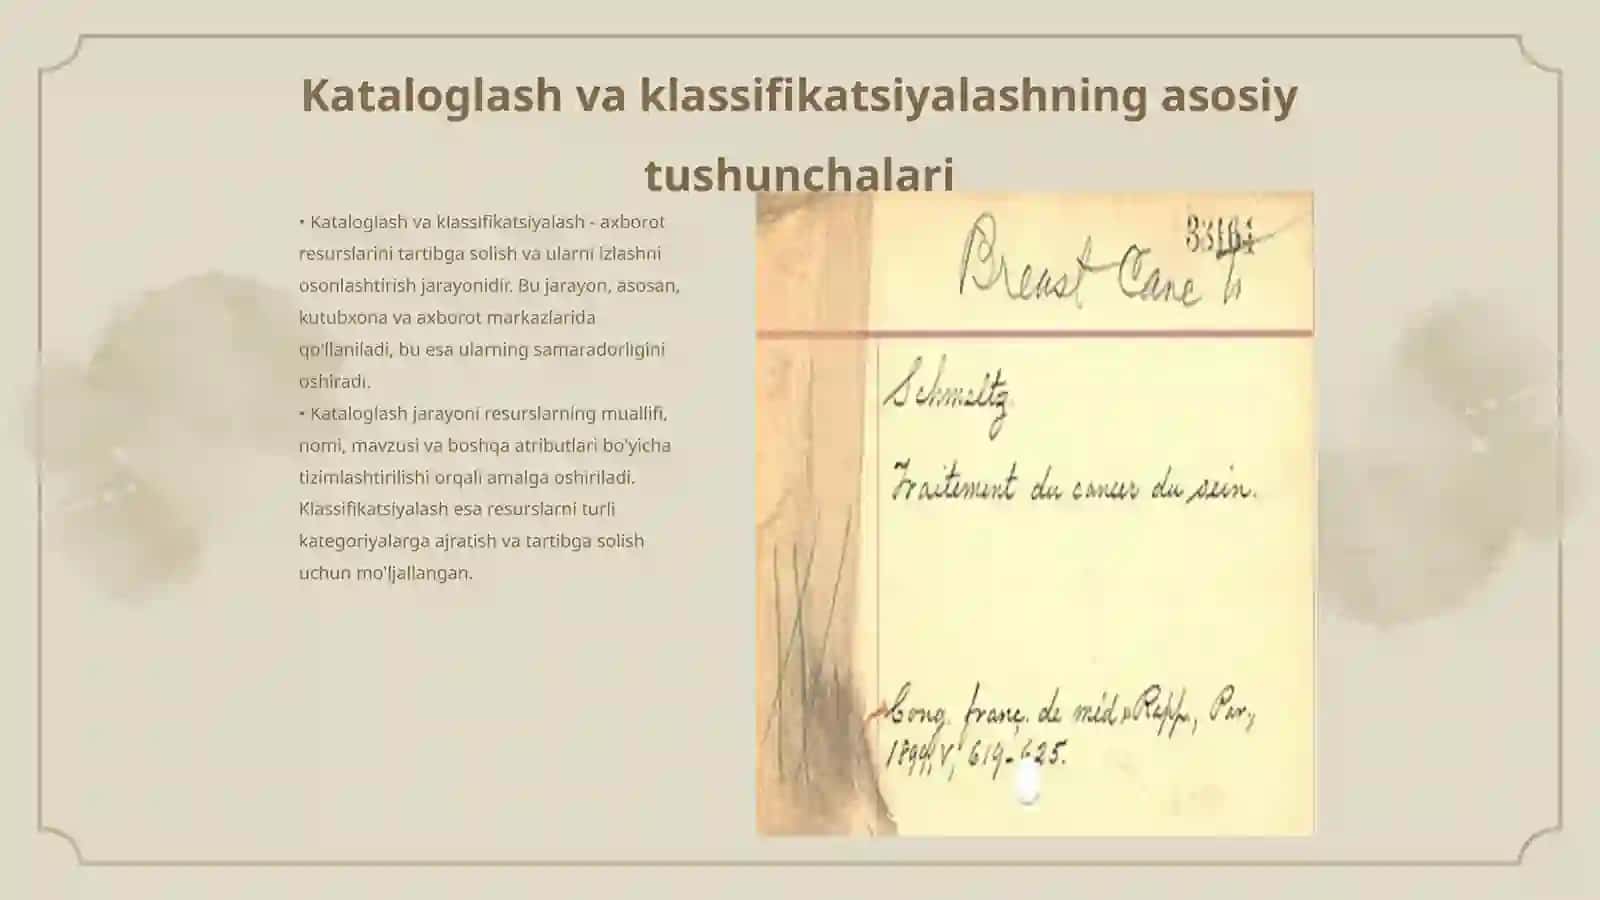 Kataloglash va klassifikatsiyalashning asosiy
tushunchalari
• Kataloglash va klassifikatsiyalash - axborot
resurslarini tartibga solish va ularni izlashni
osonlashtirish jarayonidir. Bu jarayon, asosan,
kutubxona va axborot markazlarida
qo'llaniladi, bu esa ularning samaradorligini
oshiradi.
• Kataloglash jarayoni resurslarning muallifi,
nomi, mavzusi va boshqa atributlari bo'yicha
tizimlashtirilishi orqali amalga oshiriladi.
Klassifikatsiyalash esa resurslarni turli
kategoriyalarga ajratish va tartibga solish
uchun mo'ljallangan.
Breast
Schmeltz.
Traitement du cancer du sein.
Cong. franç. de méd. Par.,
619-625.